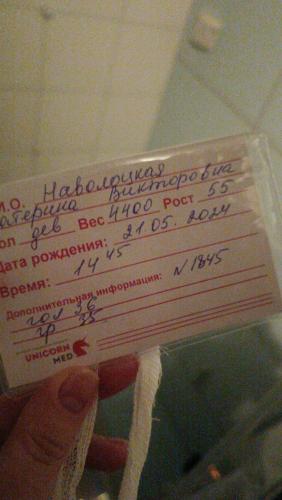 И.О. Наволоцкая
атерина Викторовна
ол дев Вес 4400 Рост 55
Дата рождения: 21.05.2024
Время: 14 45
Дополнительная информация: N 1845
гол 36
гр 35
UNICORN
MED